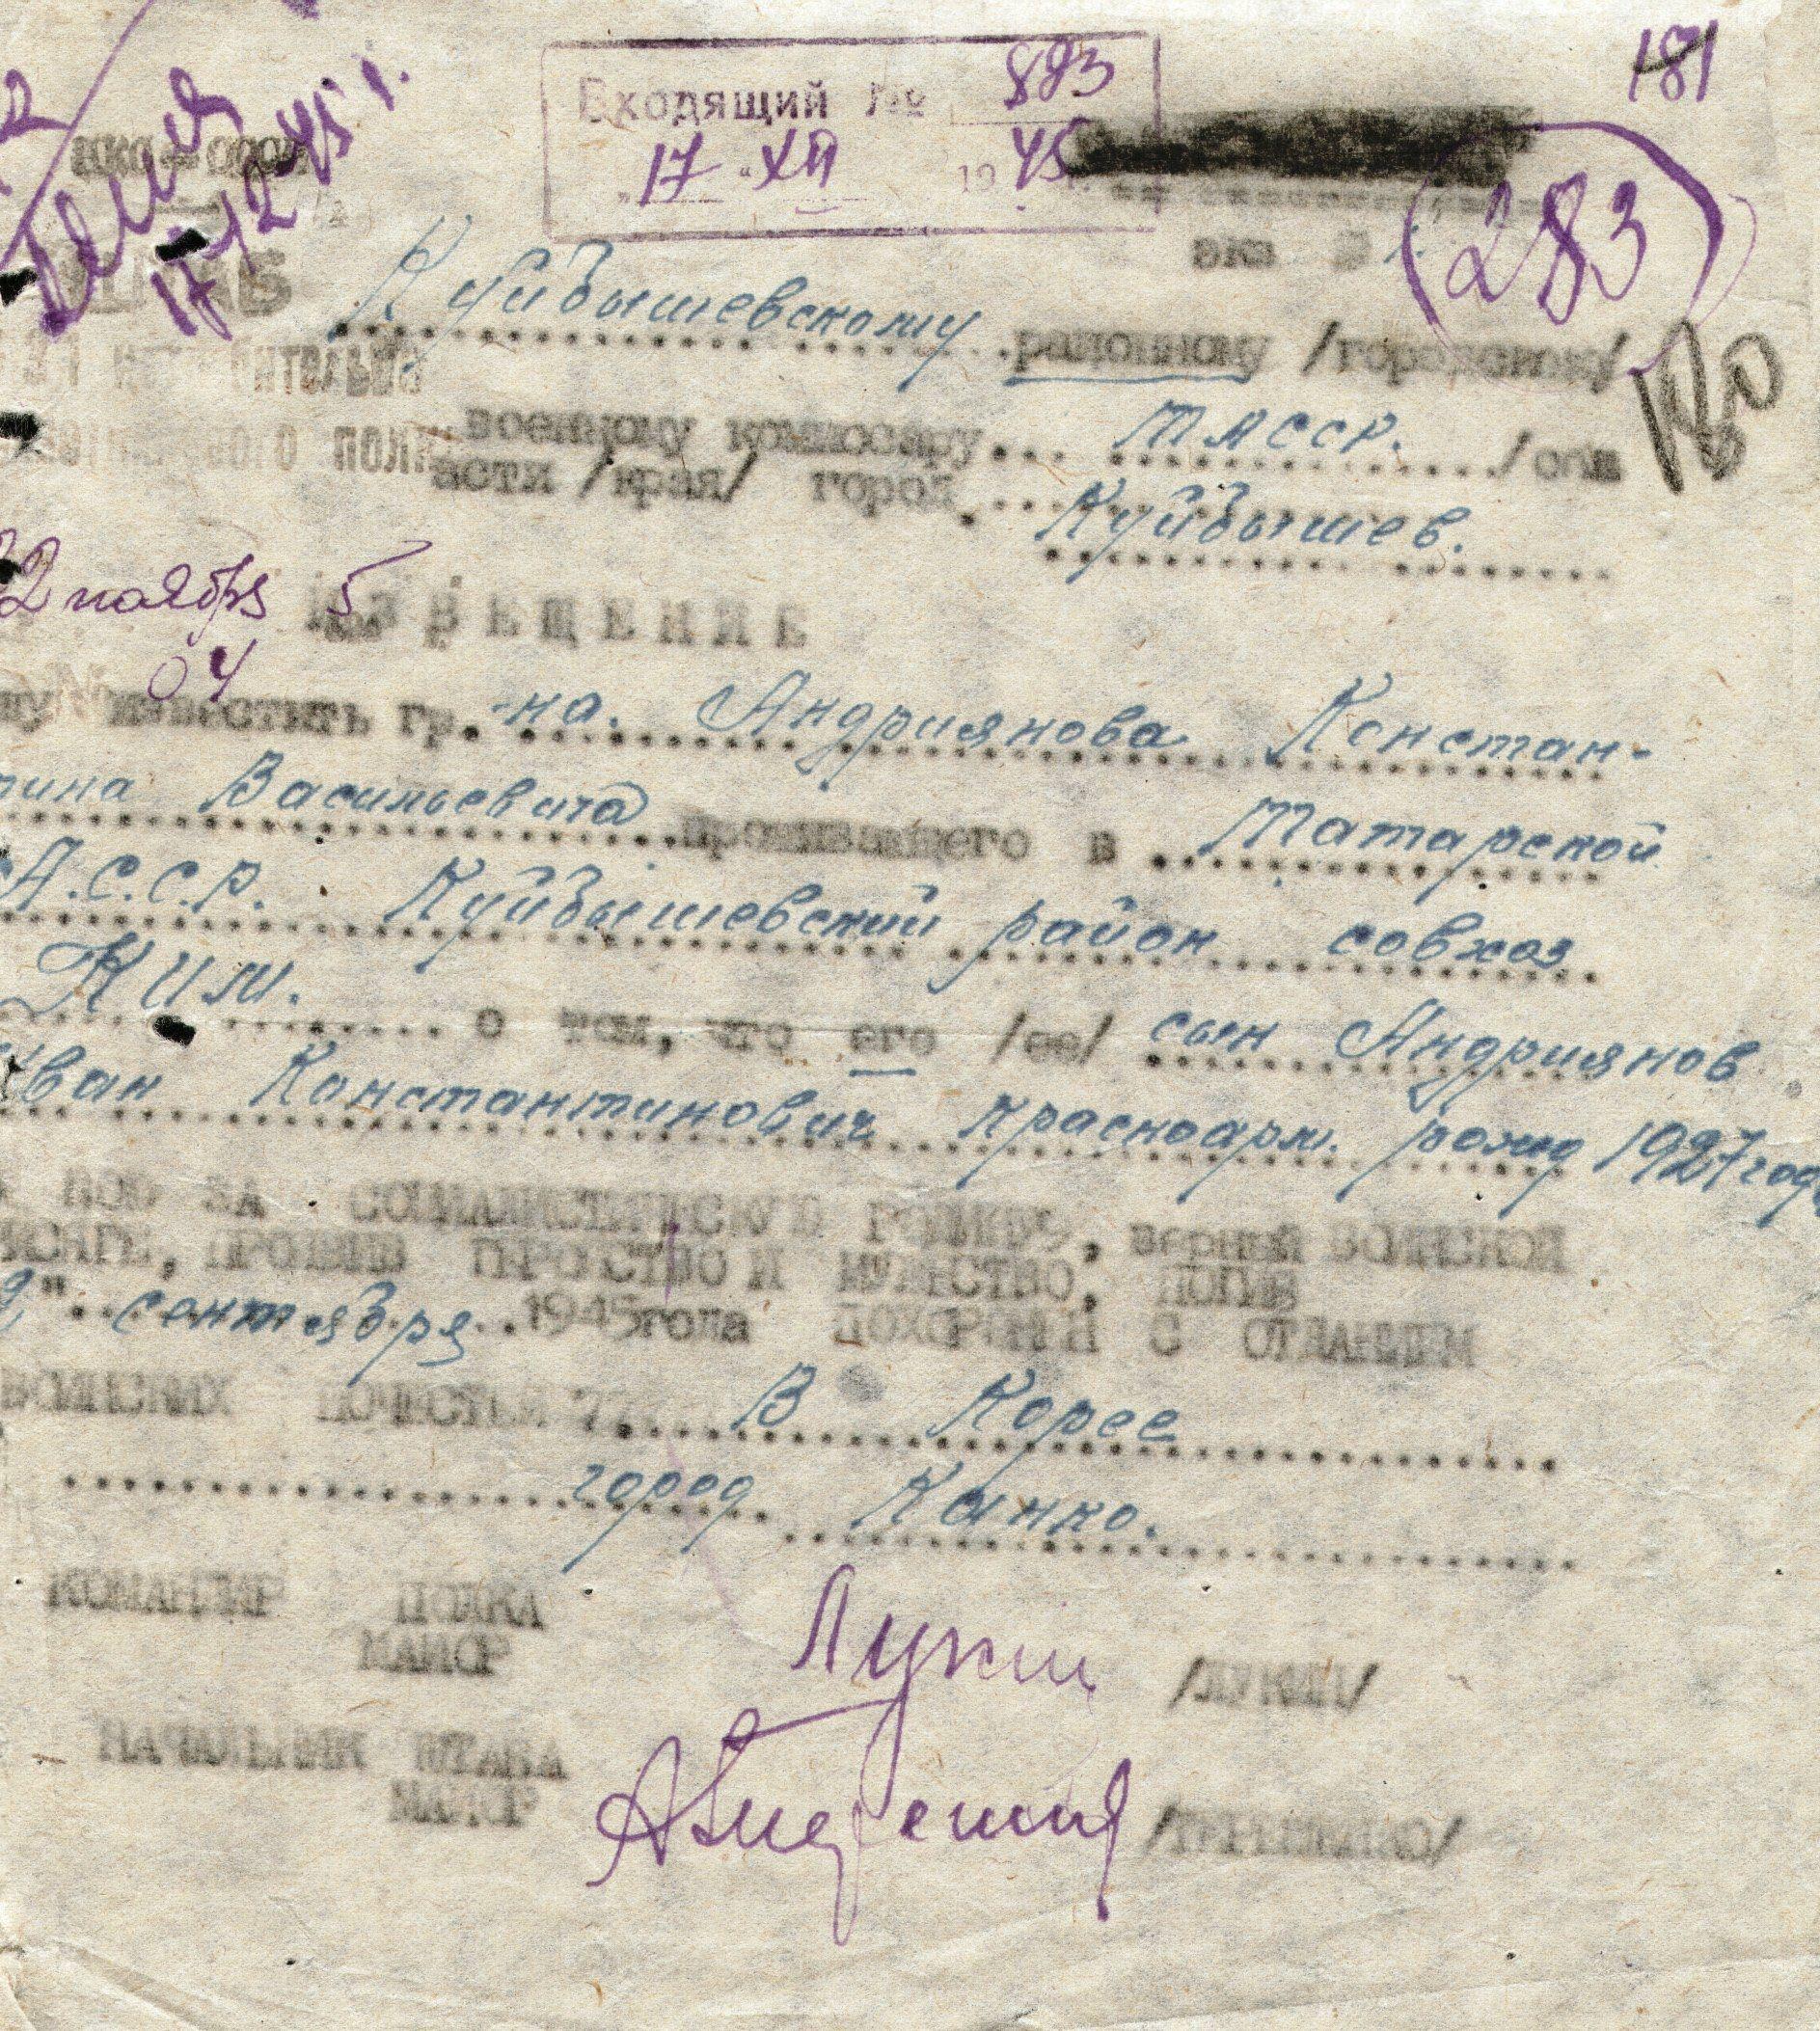 181
Входящий № 883
"17" XII 1945 г.
17/12-45 г.
283
экз
Куйбышевскому районному /городскому/
180
военному комиссару... ТАССР. /обл
асти /края/ город Куйбышев.
ноября 5
Извещение
04
известить гр.-на. Андриянова Констан-
тина Васильевича проживающего в Татарской
А.С.С.Р. Куйбышевский район совхоз
Ким. о том, что его /ее/ сын Андриянов
Иван Константинович Красноарм. рожд 1927 год
ЗА СОЦИАЛИСТИЧЕСКУЮ РОДИНУ, верный ВОИНСКОЙ
ПРИСЯГЕ, ПРОЯВИВ ГЕРОЙСТВО И МУЖЕСТВО, ПОГИБ
" сентября 1945 года ПОХОРОНЕН С ОТДАНИЕМ
ВОИНСКИХ ПОЧЕСТЕЙ В Корее
город Канко.
КОМАНДИР ПОЛКА
МАЙОР Лукин /ЛУКИН/
НАЧАЛЬНИК ШТАБА
МАЙОР